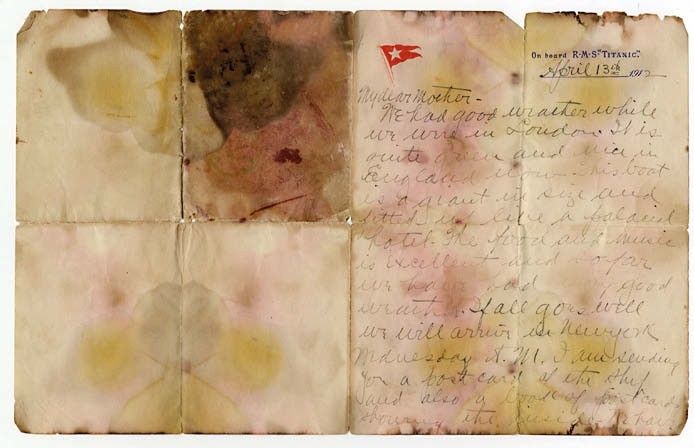 On board R·M·S "TITANIC."
April 13th 1912
My dear Mother-
We had good weather while
we were in London. It is
quite green and nice in
England now. This boat
is a giant in size and
fitted up like a palacial
hotel. The food and music
is excellent and so far
we have had very good
weather. If all goes well
we will arrive in New York
Wednesday A.M. I am sending
you a post card of the ship
and also a book of post cards
showing the inside